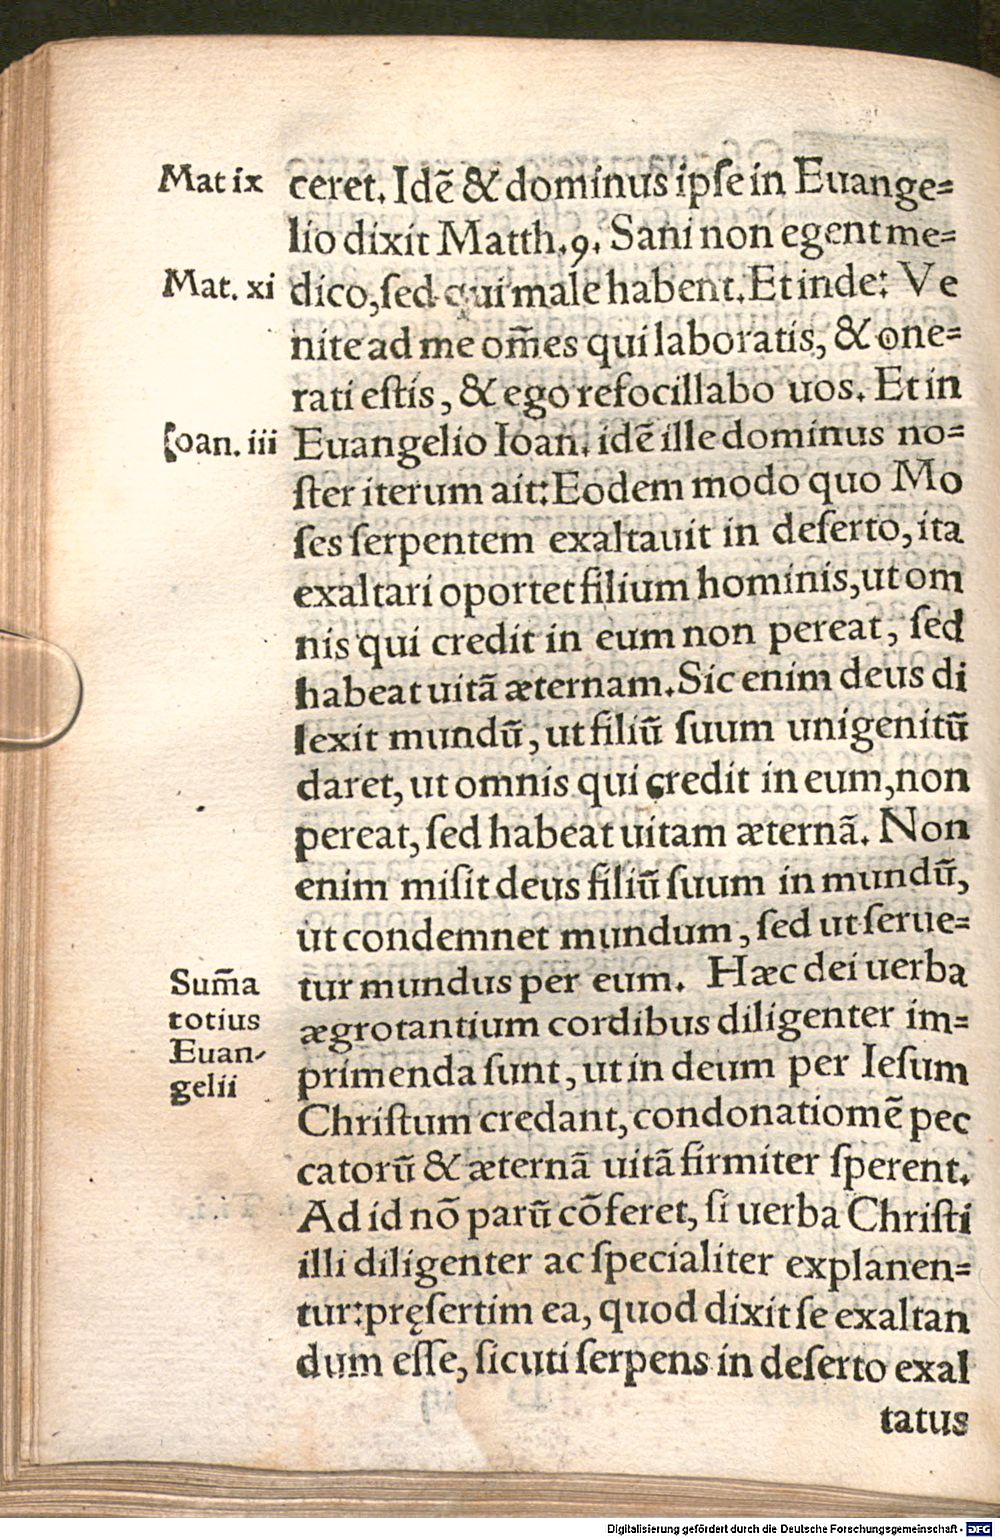 Mat ix
ceret. Idē & dominus ipſe in Euange=
lio dixit Matth.9. Sani non egent me=
Mat. xi
dico, ſed qui male habent. Et inde: Ve
nite ad me om̃es qui laboratis, & one=
rati eſtis, & ego refocillabo uos. Et in
Ioan. iii
Euangelio Ioan. idē ille dominus no=
ſter iterum ait: Eodem modo quo Mo
ſes ſerpentem exaltauit in deſerto, ita
exaltari oportet filium hominis, ut om
nis qui credit in eum non pereat, ſed
habeat uitā æternam. Sic enim deus di
lexit mundū, ut filiū ſuum unigenitū
daret, ut omnis qui credit in eum, non
pereat, ſed habeat uitam æternā. Non
enim miſit deus filiū ſuum in mundū,
ut condemnet mundum, ſed ut ſerue=
tur mundus per eum. Hæc dei uerba
Sum̃a
totius
Euan-
gelii
ægrotantium cordibus diligenter im=
primenda ſunt, ut in deum per Ieſum
Chriſtum credant, condonatiomē pec
catorū & æternā uitā firmiter ſperent.
Ad id nō parū cōferet, ſi uerba Chriſti
illi diligenter ac ſpecialiter explanen=
tur: pręſertim ea, quod dixit ſe exaltan
dum eſſe, ſicuti ſerpens in deſerto exal
tatus
Digitalisierung gefördert durch die Deutsche Forschungsgemeinschaft - DFG